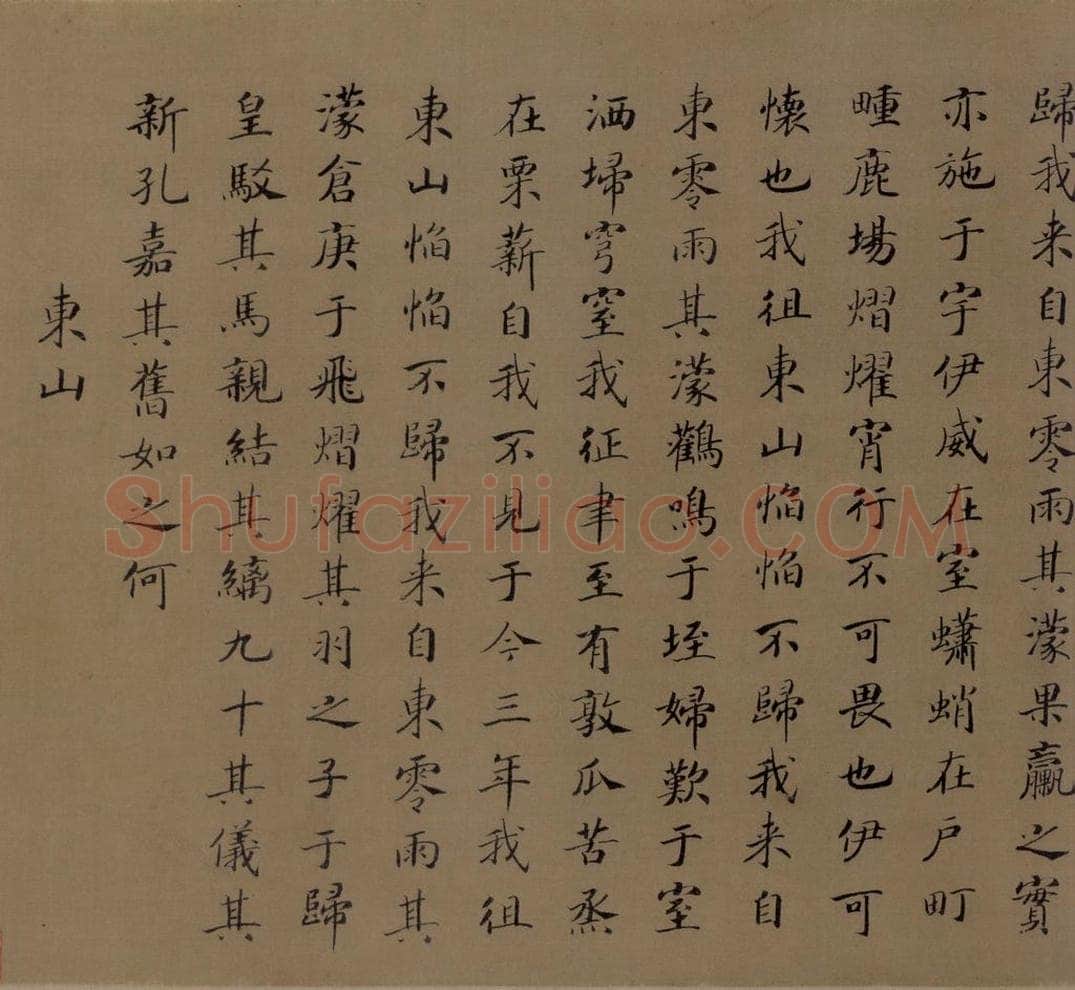 歸我来自東零雨其濛果臝之實
亦施于宇伊威在室蠨蛸在戶町
畽鹿場熠燿宵行不可畏也伊可
懐也我徂東山慆慆不歸我来自
東零雨其濛鸛鳴于垤婦歎于室
洒埽穹窒我征聿至有敦瓜苦烝
在栗薪自我不見于今三年我徂
東山慆慆不歸我来自東零雨其
濛倉庚于飛熠燿其羽之子于歸
皇駁其馬親結其縭九十其儀其
新孔嘉其舊如之何
東山
Shufaziliao.COM